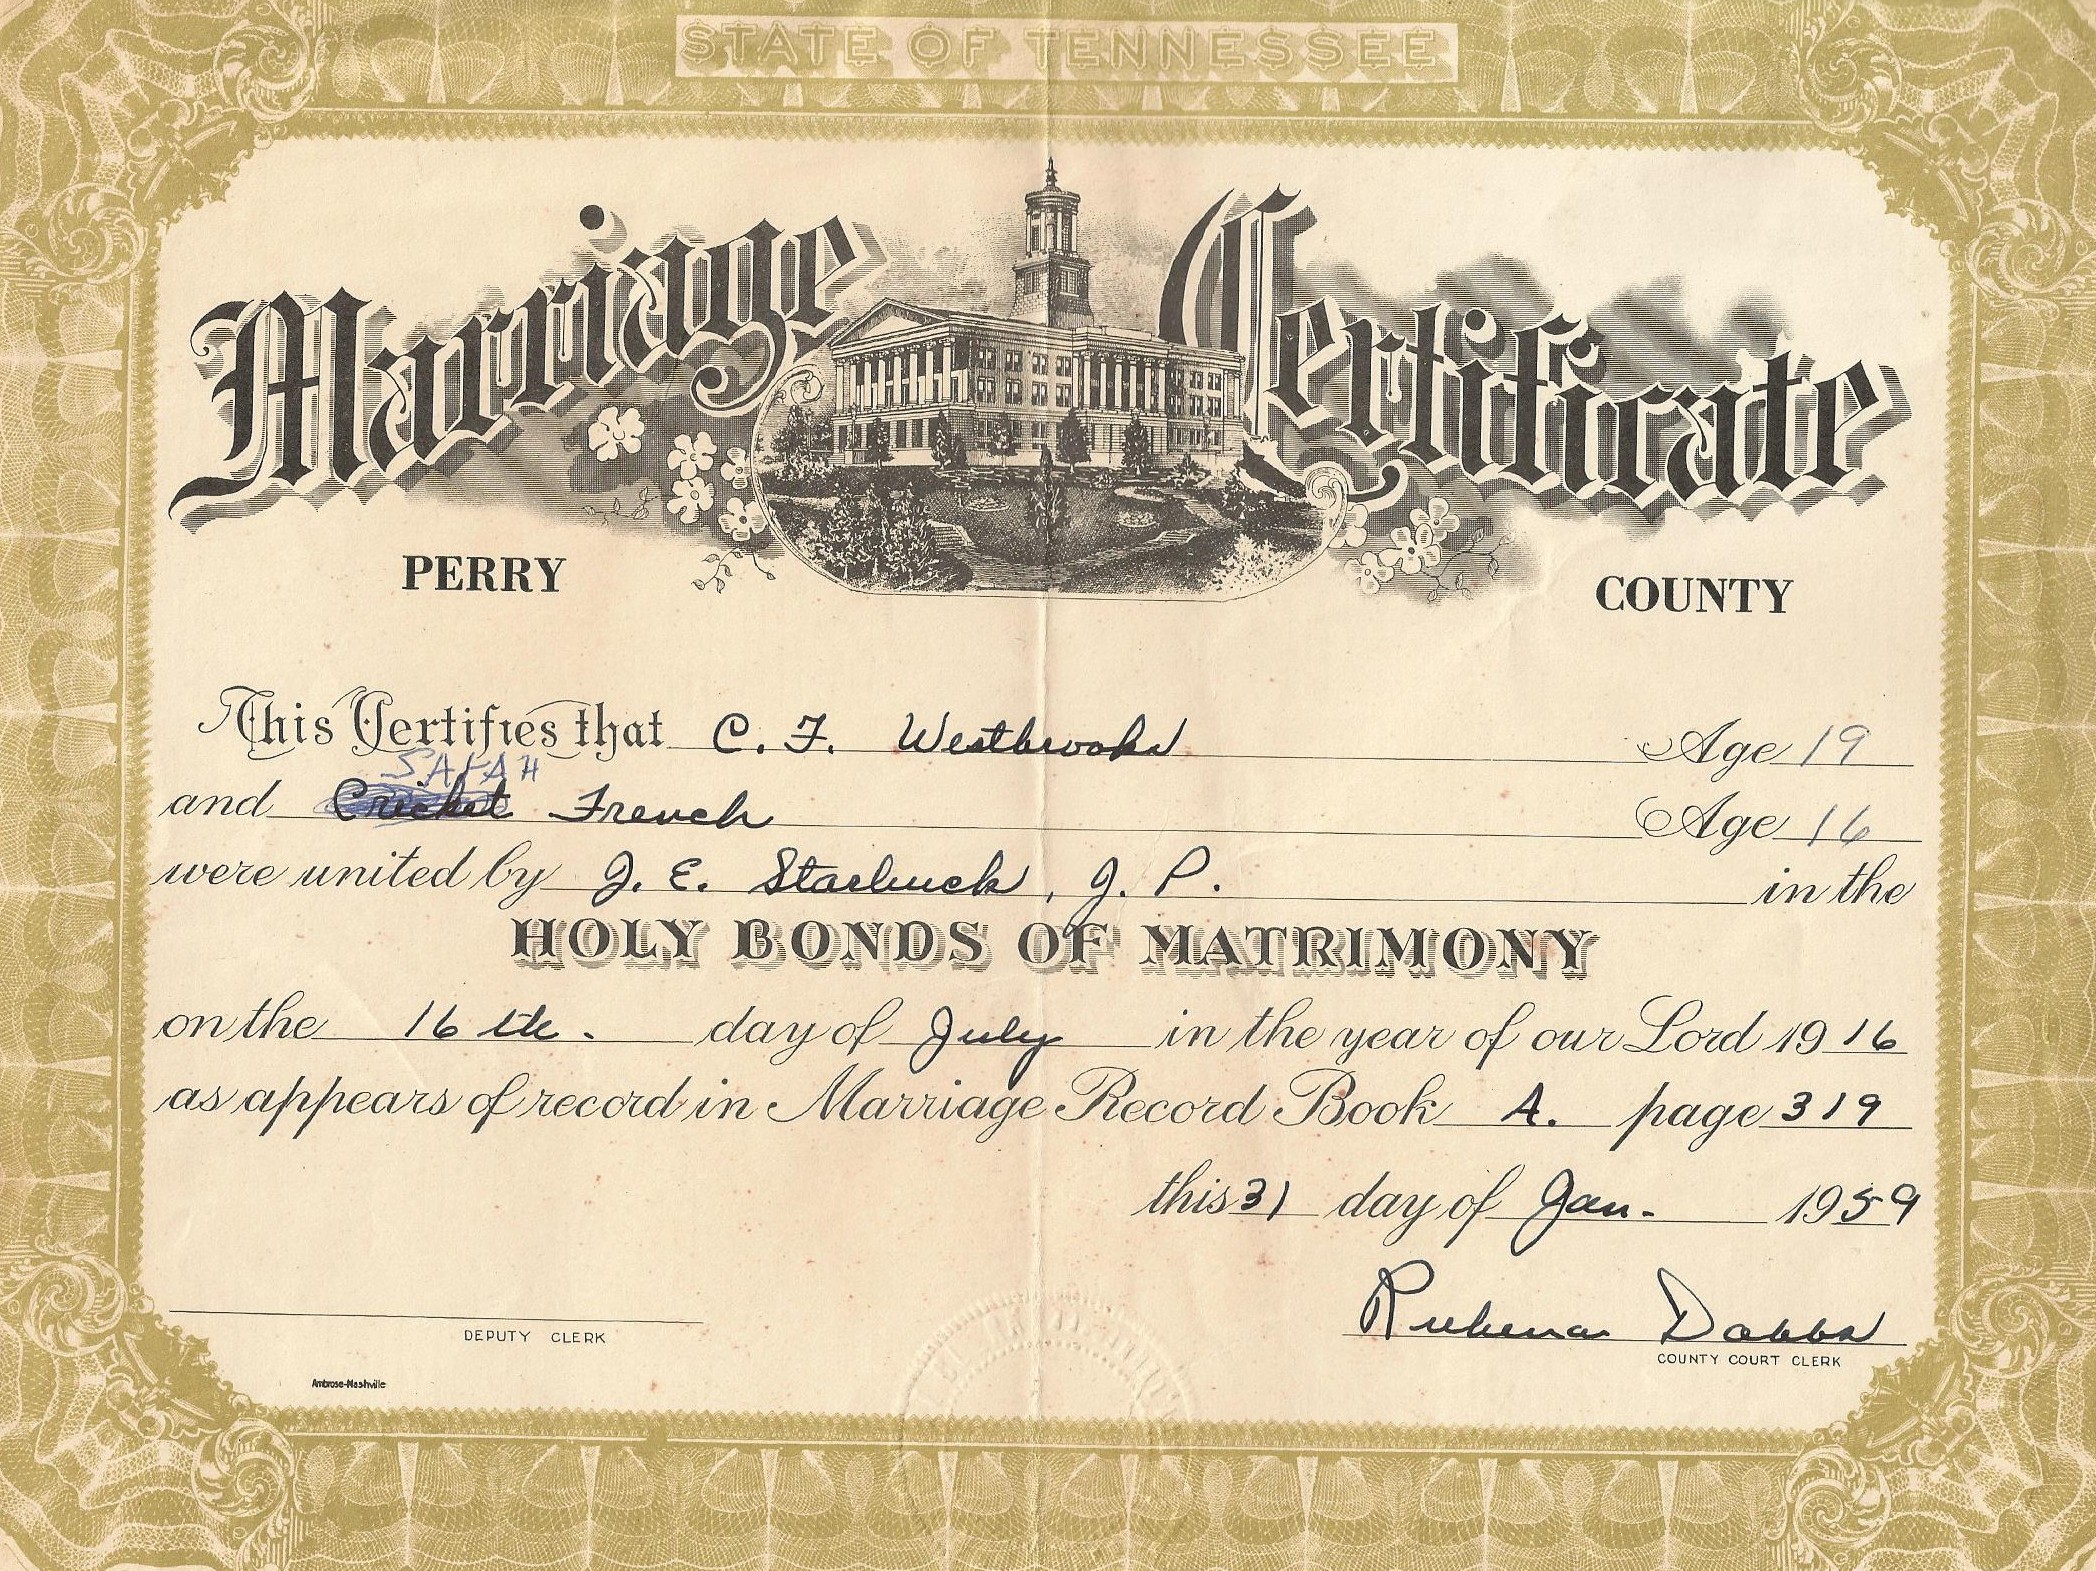 STATE OF TENNESSEE
Marriage Certificate
PERRY COUNTY
This Certifies that C. F. Westbrooks Age 19
SARAH
and Cricket French Age 16
were united by J. E. Starbuck, J. P. in the
HOLY BONDS OF MATRIMONY
on the 16th. day of July in the year of our Lord 1916
as appears of record in Marriage Record Book A. page 319
this 31 day of Jan. 1959
Rubena Dabbs
DEPUTY CLERK
COUNTY COURT CLERK
Ambrose-Nashville